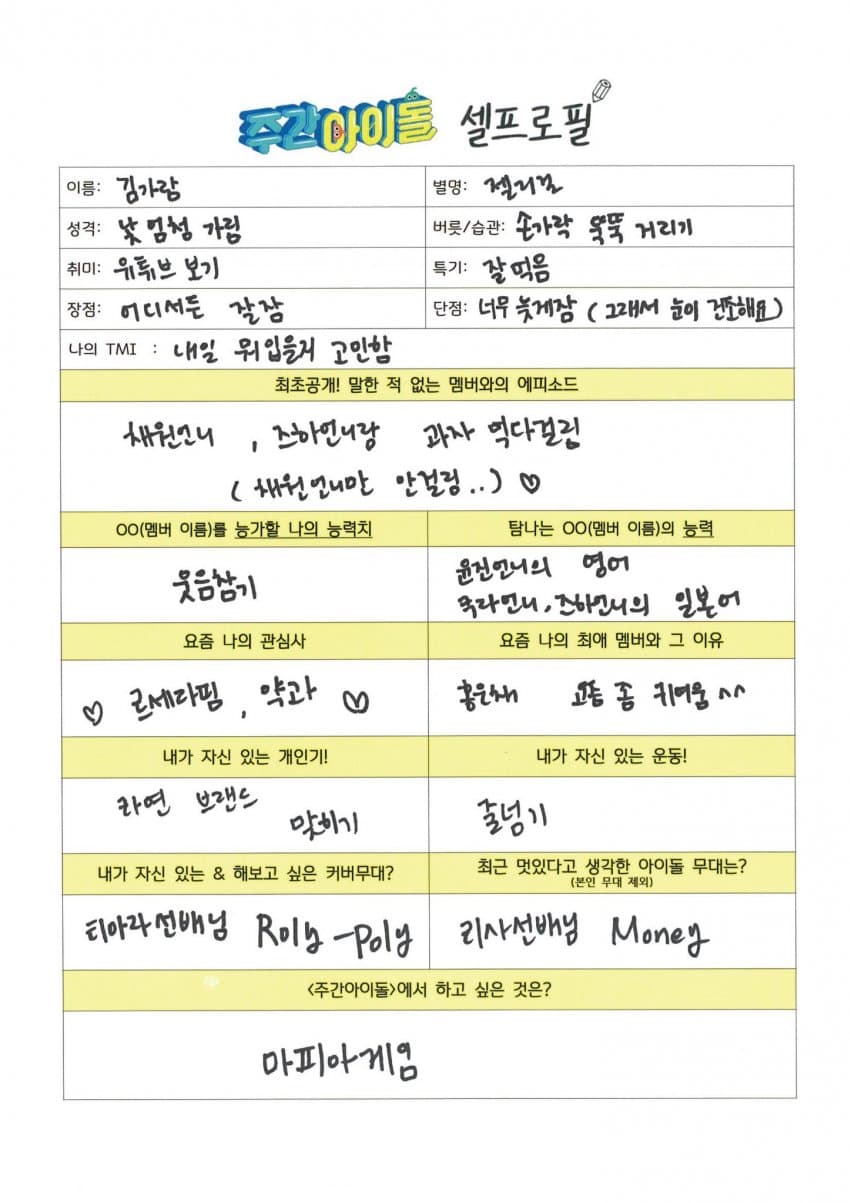 주간아이돌 셀프로필
이름: 김가람 별명: 젤리길
성격: 낯 엄청 가림 버릇/습관: 손가락 뚝뚝 거리기
취미: 유튜브 보기 특기: 잘먹음
장점: 어디서든 잘잠 단점: 너무 늦게잠 (그래서 눈이 건조해요)
나의 TMI : 내일 뭐입을지 고민함
최초공개! 말한 적 없는 멤버와의 에피소드
채원언니 , 즈하언니랑 과자 먹다걸림
(채원언니만 안걸림..) ♡
OO(멤버 이름)를 능가할 나의 능력치 탐나는 OO(멤버 이름)의 능력
웃음참기
윤진언니의 영어
꾸라언니, 즈하언니의 일본어
요즘 나의 관심사 요즘 나의 최애 멤버와 그 이유
♡ 르세라핌, 약과 ♡ 홍은채 요즘 좀 귀여움 ^^
내가 자신 있는 개인기! 내가 자신 있는 운동!
라면 브랜드
맞히기
줄넘기
내가 자신 있는 & 해보고 싶은 커버무대? 최근 멋있다고 생각한 아이돌 무대는?
(본인 무대 제외)
티아라선배님 Roly-Poly 리사선배님 Money
<주간아이돌>에서 하고 싶은 것은?
마피아게임